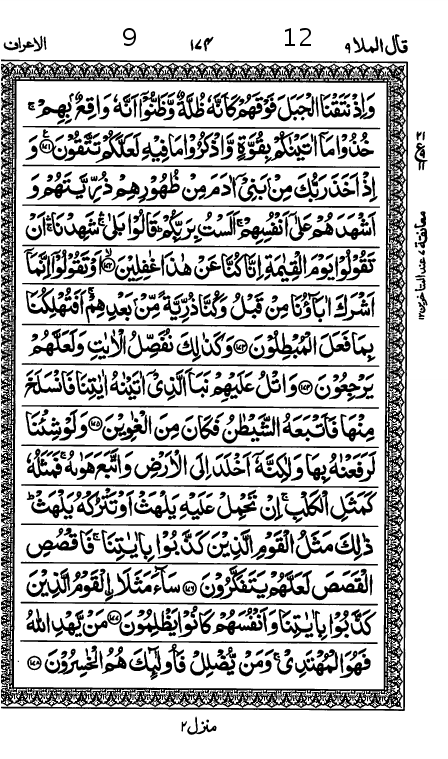 قال الملا ٩ 12 ١٧٤ 9 الاعراف
وَاِذْ نَتَقْنَا الْجَبَلَ فَوْقَهُمْ كَاَنَّهٗ ظُلَّةٌ وَّظَنُّوْۤا اَنَّهٗ وَاقِعٌۢ بِهِمْ ۚ
خُذُوْا مَاۤ اٰتَيْنٰكُمْ بِقُوَّةٍ وَّاذْكُرُوْا مَا فِيْهِ لَعَلَّكُمْ تَتَّقُوْنَ ﴿۱۷۱﴾ وَ
اِذْ اَخَذَ رَبُّكَ مِنْۢ بَنِيْۤ اٰدَمَ مِنْ ظُهُوْرِهِمْ ذُرِّيَّتَهُمْ وَ
اَشْهَدَهُمْ عَلٰۤى اَنْفُسِهِمْ ۚ اَلَسْتُ بِرَبِّكُمْ ؕ قَالُوْا بَلٰى ۛۚ شَهِدْنَا ۛۚ اَنْ
تَقُوْلُوْا يَوْمَ الْقِيٰمَةِ اِنَّا كُنَّا عَنْ هٰذَا غٰفِلِيْنَ ﴿۱۷۲﴾ اَوْ تَقُوْلُوْۤا اِنَّمَاۤ
اَشْرَكَ اٰبَآؤُنَا مِنْ قَبْلُ وَكُنَّا ذُرِّيَّةً مِّنْۢ بَعْدِهِمْ ۚ اَفَتُهْلِكُنَا
بِمَا فَعَلَ الْمُبْطِلُوْنَ ﴿۱۷۳﴾ وَكَذٰلِكَ نُفَصِّلُ الْاٰيٰتِ وَلَعَلَّهُمْ
يَرْجِعُوْنَ ﴿۱۷۴﴾ وَاتْلُ عَلَيْهِمْ نَبَاَ الَّذِيْۤ اٰتَيْنٰهُ اٰيٰتِنَا فَانْسَلَخَ
مِنْهَا فَاَتْبَعَهُ الشَّيْطٰنُ فَكَانَ مِنَ الْغٰوِيْنَ ﴿۱۷۵﴾ وَلَوْ شِئْنَا
لَرَفَعْنٰهُ بِهَا وَلٰكِنَّهٗۤ اَخْلَدَ اِلَى الْاَرْضِ وَاتَّبَعَ هَوٰىهُ ۚ فَمَثَلُهٗ
كَمَثَلِ الْكَلْبِ ۚ اِنْ تَحْمِلْ عَلَيْهِ يَلْهَثْ اَوْ تَتْرُكْهُ يَلْهَثْ ؕ
ذٰلِكَ مَثَلُ الْقَوْمِ الَّذِيْنَ كَذَّبُوْا بِاٰيٰتِنَا ۚ فَاقْصُصِ
الْقَصَصَ لَعَلَّهُمْ يَتَفَكَّرُوْنَ ﴿۱۷۶﴾ سَآءَ مَثَلَا اِۨلْقَوْمُ الَّذِيْنَ
كَذَّبُوْا بِاٰيٰتِنَا وَاَنْفُسَهُمْ كَانُوْا يَظْلِمُوْنَ ﴿۱۷۷﴾ مَنْ يَّهْدِ اللّٰهُ
فَهُوَ الْمُهْتَدِيْ ۚ وَمَنْ يُّضْلِلْ فَاُولٰٓئِكَ هُمُ الْخٰسِرُوْنَ ﴿۱۷۸﴾
معانقة ٧ عند المتاخرين ١٢
منزل ٢